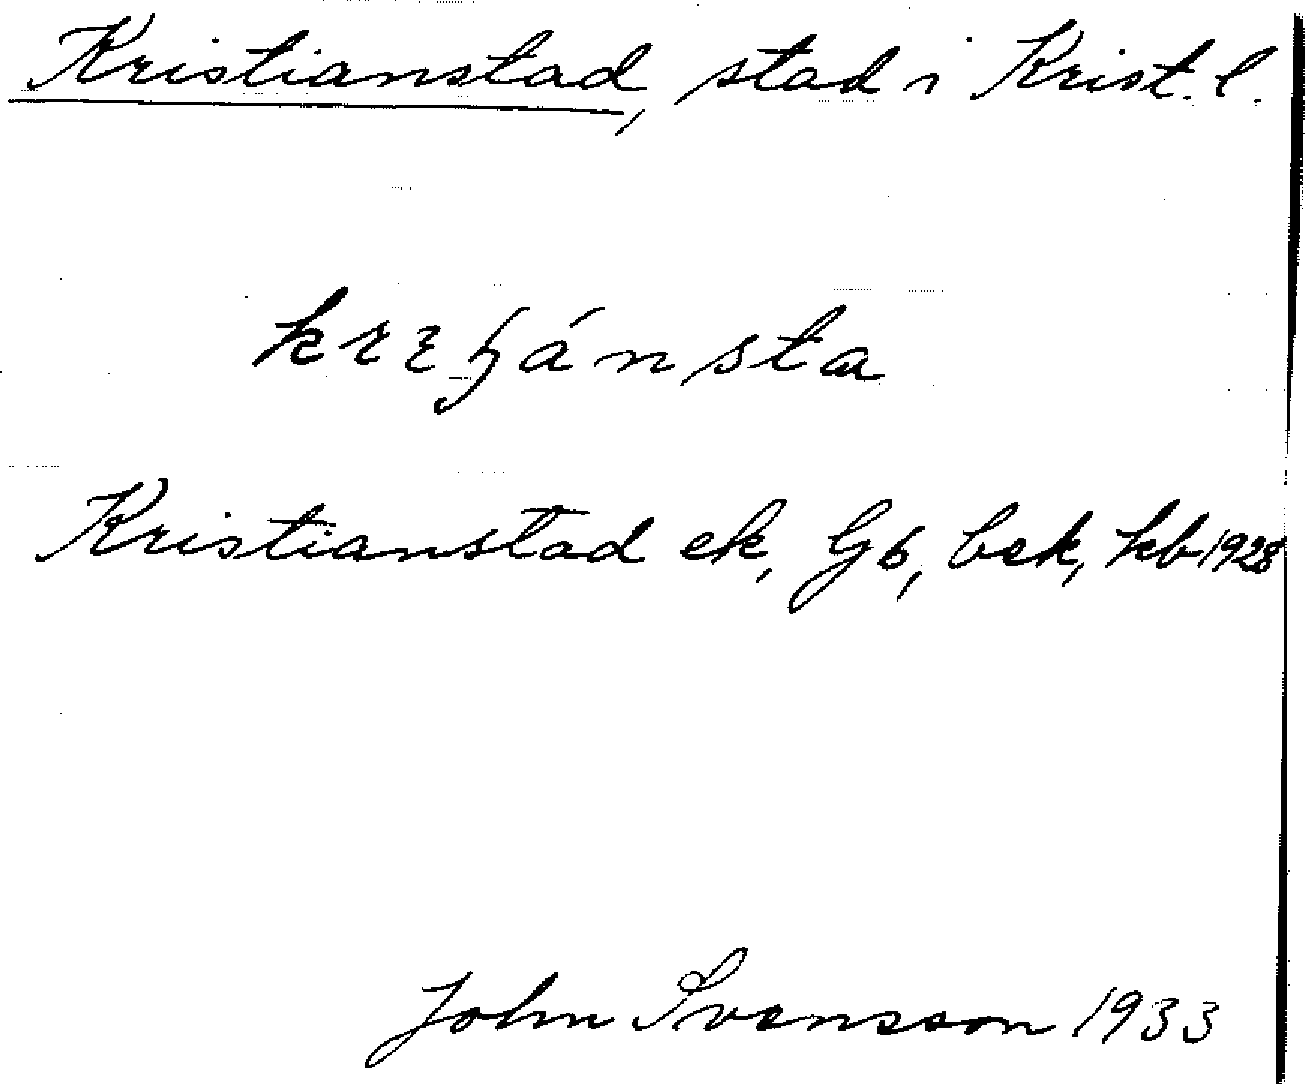 Kristianstad, stad i Krist. l.
Kristianstad ek, Gb, bek, kb 1928
John Svensson 1933